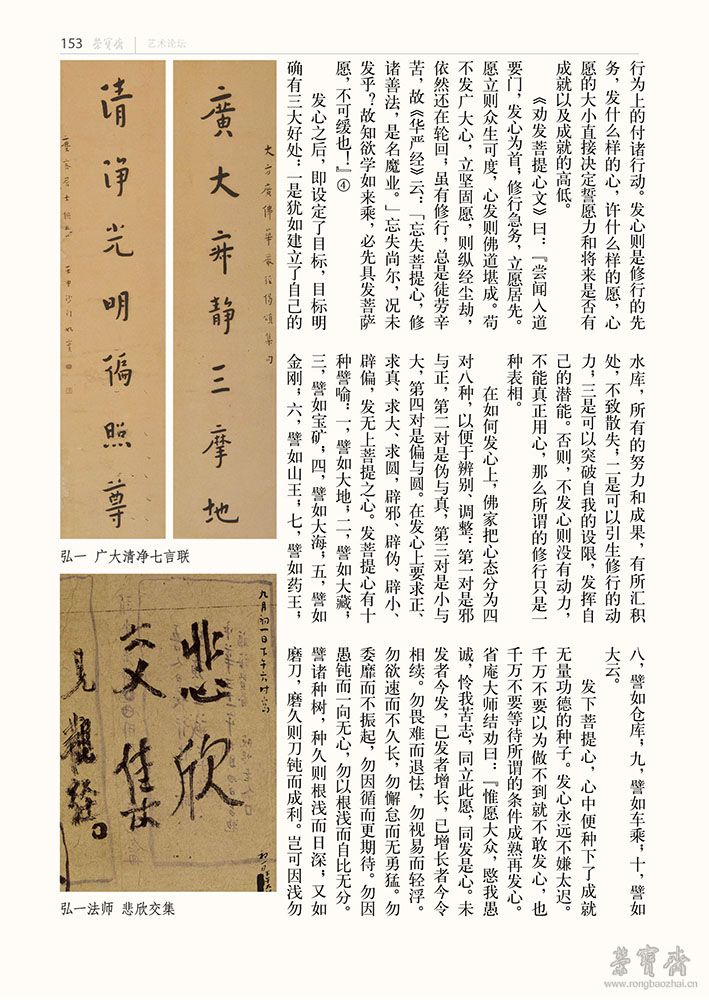 153 榮寶齋 艺术论坛
行为上的付诸行动。发心则是修行的先
务，发什么样的心，许什么样的愿，心
愿的大小直接决定誓愿力和将来是否有
成就以及成就的高低。
《劝发菩提心文》曰：『尝闻入道
要门，发心为首；修行急务，立愿居先。
愿立则众生可度，心发则佛道堪成。苟
不发广大心，立坚固愿，则纵经尘劫，
依然还在轮回；虽有修行，总是徒劳辛
苦，故《华严经》云：「忘失菩提心，修
诸善法，是名魔业。」忘失尚尔，况未
发乎？故知欲学如来乘，必先具发菩萨
愿，不可缓也！』④
发心之后，即设定了目标，目标明
确有三大好处：一是犹如建立了自己的
水库，所有的努力和成果，有所汇积
处，不致散失；二是可以引生修行的动
力；三是可以突破自我的设限，发挥自
己的潜能。否则，不发心则没有动力，
不能真正用心，那么所谓的修行只是一
种表相。
在如何发心上，佛家把心态分为四
对八种，以便于辨别、调整：第一对是邪
与正，第二对是伪与真，第三对是小与
大，第四对是偏与圆。在发心上要求正、
求真、求大、求圆，辟邪、辟伪、辟小、
辟偏，发无上菩提之心。发菩提心有十
种譬喻：一，譬如大地，二，譬如大藏，
三，譬如宝矿；四，譬如大海；五，譬如
金刚；六，譬如山王；七，譬如药王，
八，譬如仓库；九，譬如车乘；十，譬如
大云。
发下菩提心，心中便种下了成就
无量功德的种子。发心永远不嫌太迟。
千万不要以为做不到就不敢发心，也
千万不要等待所谓的条件成熟再发心。
省庵大师结劝曰：『惟愿大众，愍我愚
诚，怜我苦志，同立此愿，同发是心。未
发者今发，已发者增长，已增长者今令
相续。勿畏难而退怯，勿视易而轻浮。
勿欲速而不久长，勿懈怠而无勇猛。勿
委靡而不振起，勿因循而更期待。勿因
愚钝而一向无心，勿以根浅而自比无分。
譬诸种树，种久则根浅而日深；又如
磨刀，磨久则刀钝而成利。岂可因浅勿
大方廣佛華嚴經偈頌集句
廣大寂靜三摩地
清淨光明徧照尊
弘一 广大清净七言联
九月初一日下午六时寫
悲欣
交集
見觀經。
弘一法师 悲欣交集
榮寶齋
www.rongbaozhai.cn